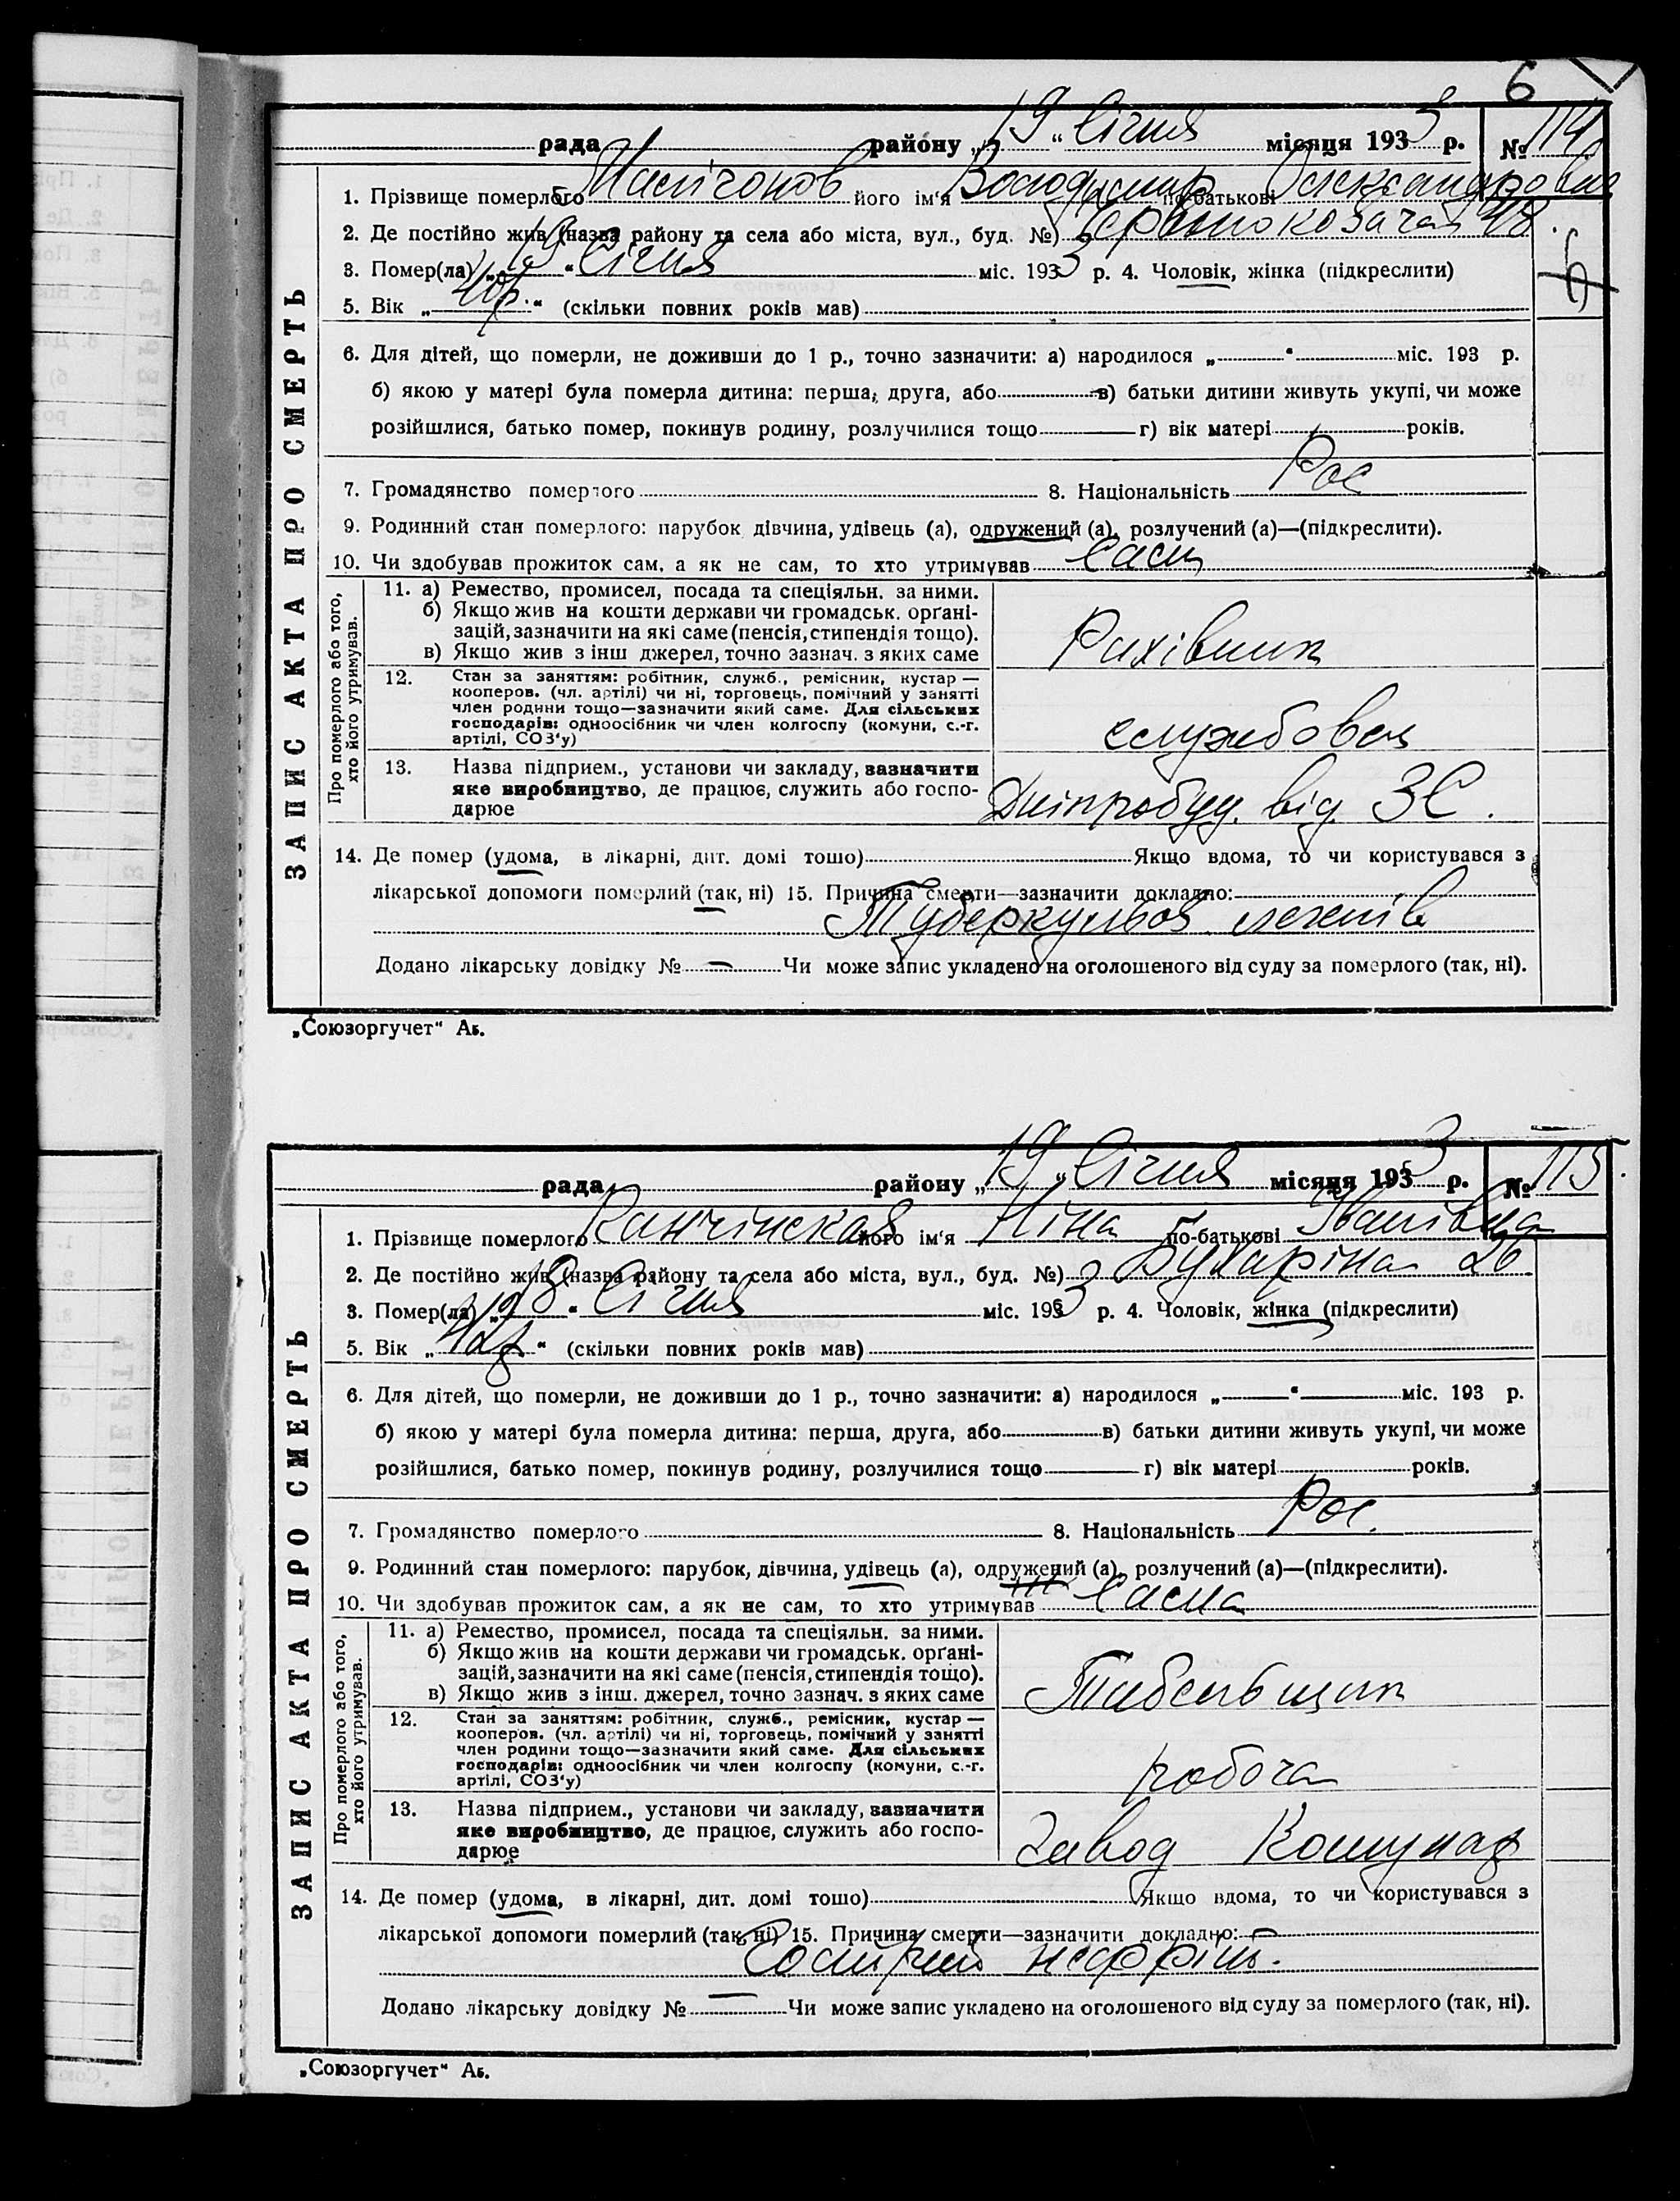 6
рада району „19“ Січня місяця 1933 р. № 114
1. Прізвище померлого його ім'я Володимир по-батькові Олександрович
2. Де постійно жив (назва району та села або міста, вул., буд. №) Червонокозача 48
3. Помер(ла) „19“ Січня міс. 1933 р. 4. Чоловік, жінка (підкреслити)
5. Вік „40р.“ (скільки повних років мав)
6. Для дітей, що померли, не доживши до 1 р., точно зазначити: а) народилося „—“ міс. 193 р.
б) якою у матері була померла дитина: перша, друга, або в) батьки дитини живуть укупі, чи може
розійшлися, батько помер, покинув родину, розлучилися тощо г) вік матері років.
7. Громадянство померлого 8. Національність Рос
9. Родинний стан померлого: парубок, дівчина, удівець (а), одружений (а), розлучений (а)—(підкреслити).
10. Чи здобував прожиток сам, а як не сам, то хто утримував Сам
ЗАПИС АКТА ПРО СМЕРТЬ
Про померлого або того, хто його утримував.
11. а) Ремество, промисел, посада та спеціяльн. за ними.
б) Якщо жив на кошти держави чи громадськ. орґані-
зацій, зазначити на які саме (пенсія, стипендія тощо).
в) Якщо жив з інш джерел, точно зазнач. з яких саме
Рахівник
12. Стан за заняттям: робітник, служб., ремісник, кустар —
кооперов. (чл. артілі) чи ні, торговець, помічний у занятті
член родини тощо—зазначити який саме. Для сільських
господарів: одноосібник чи член колгоспу (комуни, с.-г.
артілі, СОЗ'у)
службовец
13. Назва підприєм., установи чи закладу, зазначити
яке виробництво, де працює, служить або госпо-
дарює
Дніпробуд. від. ЗС.
14. Де помер (удома, в лікарні, дит. домі тошо) Якщо вдома, то чи користувався з
лікарської допомоги померлий (так, ні) 15. Причина смерти—зазначити докладно:
Туберкульоз легенів
Додано лікарську довідку № — Чи може запис укладено на оголошеного від суду за померлого (так, ні).
„Союзоргучет“ Аб.
рада району „19“ Січня місяця 1933 р. № 115
1. Прізвище померлого його ім'я Ніна по-батькові Іванівна
2. Де постійно жив (назва району та села або міста, вул., буд. №) Бухаріна 26
3. Помер(ла) „18“ Січня міс. 1933 р. 4. Чоловік, жінка (підкреслити)
5. Вік „42р“ (скільки повних років мав)
6. Для дітей, що померли, не доживши до 1 р., точно зазначити: а) народилося „—“ міс. 193 р.
б) якою у матері була померла дитина: перша, друга, або в) батьки дитини живуть укупі, чи може
розійшлися, батько помер, покинув родину, розлучилися тощо г) вік матері років.
7. Громадянство померлого 8. Національність Рос.
9. Родинний стан померлого: парубок, дівчина, удівець (а), одружений (а), розлучений (а)—(підкреслити).
10. Чи здобував прожиток сам, а як не сам, то хто утримував Сама
ЗАПИС АКТА ПРО СМЕРТЬ
Про померлого або того, хто його утримував.
11. а) Ремество, промисел, посада та спеціяльн. за ними.
б) Якщо жив на кошти держави чи громадськ. орґані-
зацій, зазначити на які саме (пенсія, стипендія тощо).
в) Якщо жив з інш. джерел, точно зазнач. з яких саме
Табельщик
12. Стан за заняттям: робітник, служб., ремісник, кустар —
кооперов. (чл. артілі) чи ні, торговець, помічний у занятті
член родини тощо—зазначити який саме. Для сільських
господарів: одноосібник чи член колгоспу (комуни, с.-г.
артілі, СОЗ'у)
робоча
13. Назва підприєм., установи чи закладу, зазначити
яке виробництво, де працює, служить або госпо-
дарює
Завод Комунар
14. Де помер (удома, в лікарні, дит. домі тошо) Якщо вдома, то чи користувався з
лікарської допомоги померлий (так, ні) 15. Причина смерти—зазначити докладно:
нефріт.
Додано лікарську довідку № — Чи може запис укладено на оголошеного від суду за померлого (так, ні).
„Союзоргучет“ Аб.